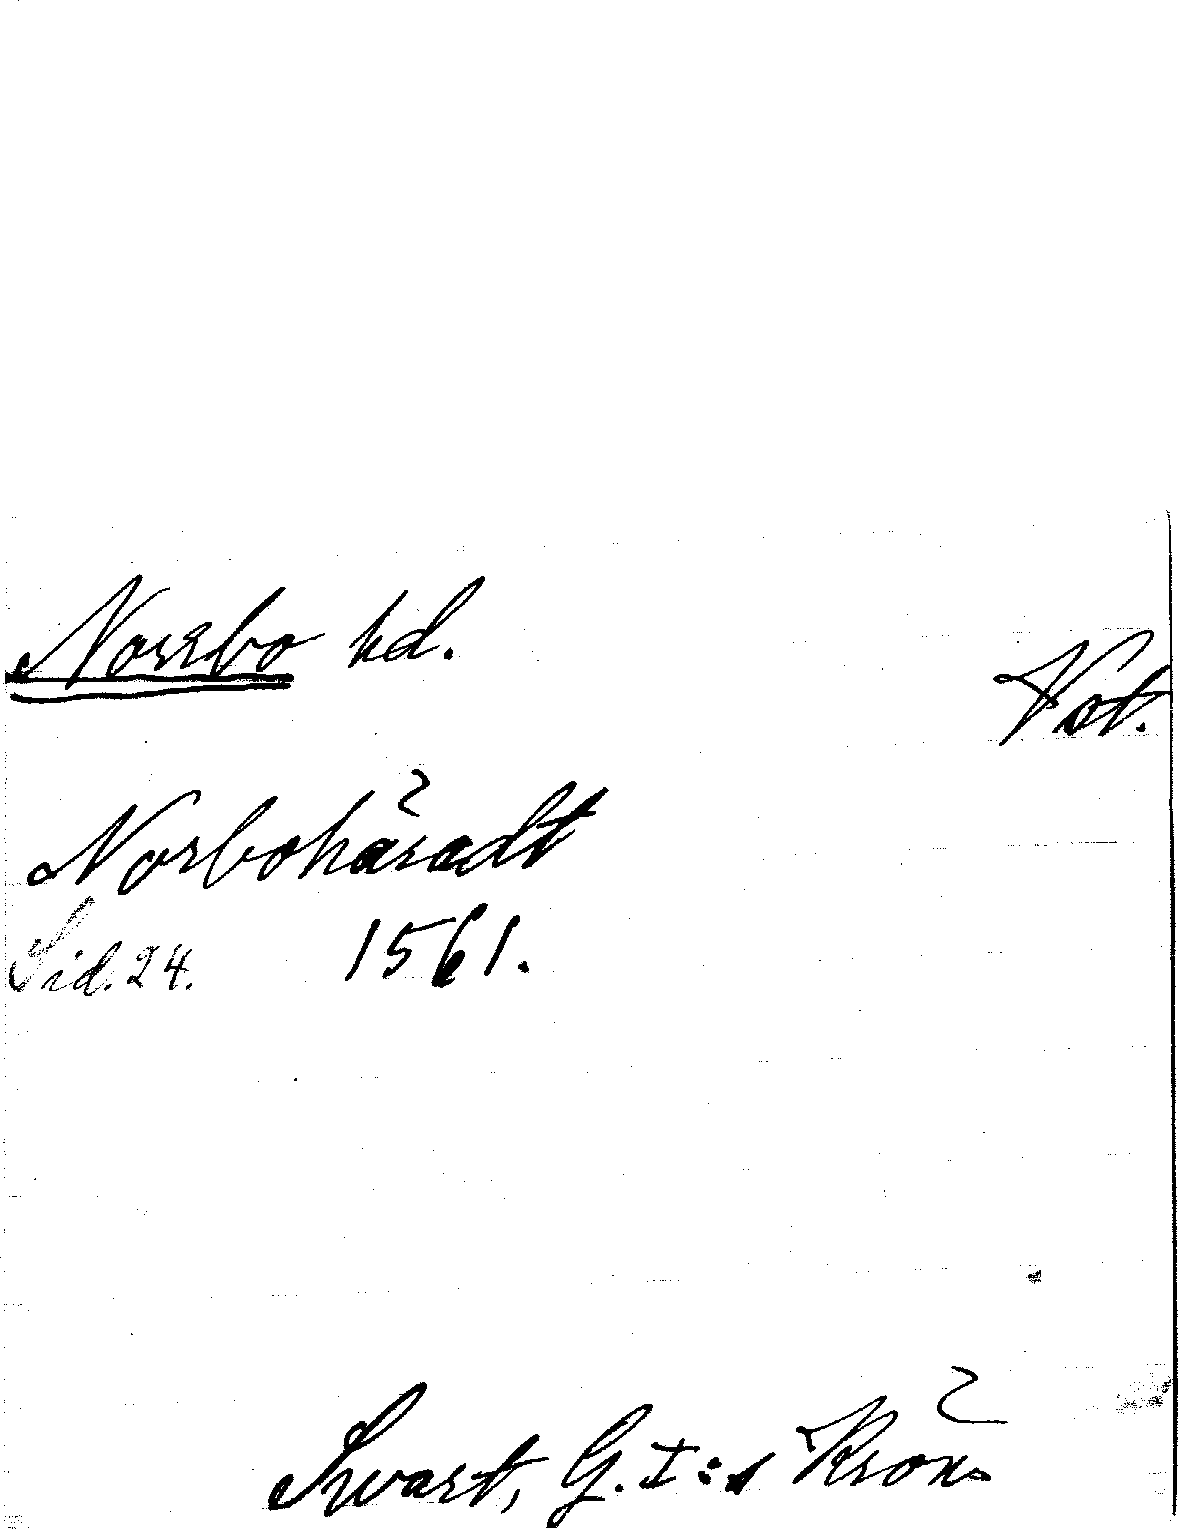 Norrbo hd.
Vst.
Norbohäradt
Sid. 24. 1561.
Swart, G. I:s Krön.